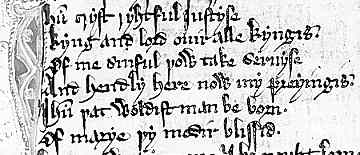 Ihū cryst ryhtful Iustyse
kyng and lord ouir alle kyngis
Of me sinful ȝow take seruyse
And hendly here now my preyingis
Ihū þat woldist man be born
Of marye þy modir blissid